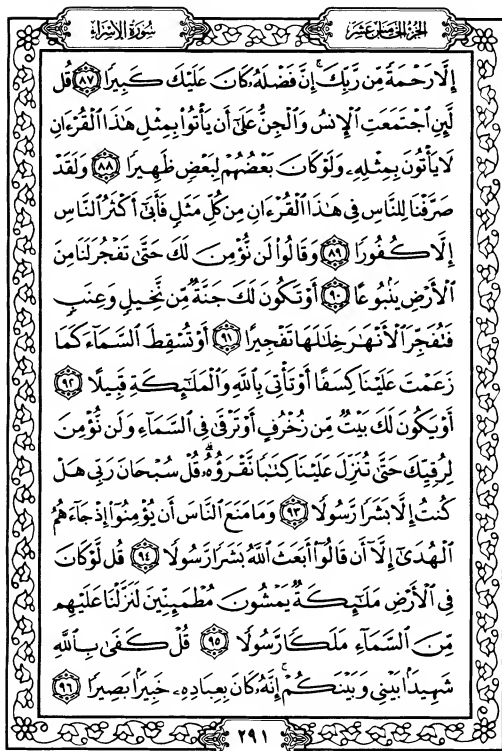 سُورَةُ الإِسْرَاء
الجُزْءُ الخَامِسَ عَشَرَ
إِلَّا رَحْمَةً مِّن رَّبِّكَ ۚ إِنَّ فَضْلَهُۥ كَانَ عَلَيْكَ كَبِيرًا ٨٧ قُل
لَّئِنِ ٱجْتَمَعَتِ ٱلْإِنسُ وَٱلْجِنُّ عَلَىٰٓ أَن يَأْتُوا۟ بِمِثْلِ هَٰذَا ٱلْقُرْءَانِ
لَا يَأْتُونَ بِمِثْلِهِۦ وَلَوْ كَانَ بَعْضُهُمْ لِبَعْضٍ ظَهِيرًا ٨٨ وَلَقَدْ
صَرَّفْنَا لِلنَّاسِ فِى هَٰذَا ٱلْقُرْءَانِ مِن كُلِّ مَثَلٍ فَأَبَىٰٓ أَكْثَرُ ٱلنَّاسِ
إِلَّا كُفُورًا ٨٩ وَقَالُوا۟ لَن نُّؤْمِنَ لَكَ حَتَّىٰ تَفْجُرَ لَنَا مِنَ
ٱلْأَرْضِ يَنۢبُوعًا ٩٠ أَوْ تَكُونَ لَكَ جَنَّةٌ مِّن نَّخِيلٍ وَعِنَبٍ
فَتُفَجِّرَ ٱلْأَنْهَٰرَ خِلَٰلَهَا تَفْجِيرًا ٩١ أَوْ تُسْقِطَ ٱلسَّمَآءَ كَمَا
زَعَمْتَ عَلَيْنَا كِسَفًا أَوْ تَأْتِىَ بِٱللَّهِ وَٱلْمَلَٰٓئِكَةِ قَبِيلًا ٩٢
أَوْ يَكُونَ لَكَ بَيْتٌ مِّن زُخْرُفٍ أَوْ تَرْقَىٰ فِى ٱلسَّمَآءِ وَلَن نُّؤْمِنَ
لِرُقِيِّكَ حَتَّىٰ تُنَزِّلَ عَلَيْنَا كِتَٰبًا نَّقْرَؤُهُۥ ۗ قُلْ سُبْحَانَ رَبِّى هَلْ
كُنتُ إِلَّا بَشَرًا رَّسُولًا ٩٣ وَمَا مَنَعَ ٱلنَّاسَ أَن يُؤْمِنُوٓا۟ إِذْ جَآءَهُمُ
ٱلْهُدَىٰٓ إِلَّآ أَن قَالُوٓا۟ أَبَعَثَ ٱللَّهُ بَشَرًا رَّسُولًا ٩٤ قُل لَّوْ كَانَ
فِى ٱلْأَرْضِ مَلَٰٓئِكَةٌ يَمْشُونَ مُطْمَئِنِّينَ لَنَزَّلْنَا عَلَيْهِم
مِّنَ ٱلسَّمَآءِ مَلَكًا رَّسُولًا ٩٥ قُلْ كَفَىٰ بِٱللَّهِ
شَهِيدًۢا بَيْنِى وَبَيْنَكُمْ ۚ إِنَّهُۥ كَانَ بِعِبَادِهِۦ خَبِيرًۢا بَصِيرًا ٩٦
٢٩١